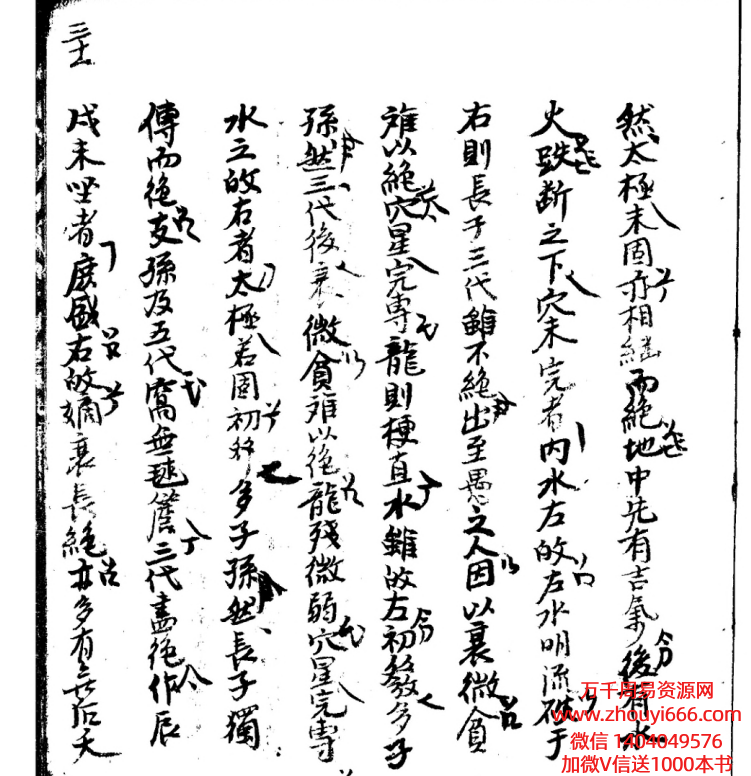 然太極未固亦相繼而絶地中先有吉氣後有水
火跌断之下穴未完者内水左的左水明流破于
右則長子三代雖不絶出至愚之人因以衰微貧
难以絶穴星完專龍則梗直水雖的左初發多子
孫然三代後衰微貧难以絶龍残微弱穴星完專
水立的右者太極若固初多子孫然長子獨
傳而絶支孫及五代窩無毬簷三代盡絶作辰
戌未坐者應盛右的嫡衰長絶亦多有夭
三十
万千周易资源网
www.zhouyi666.com
微信 1404049576
加微V信送1000本书